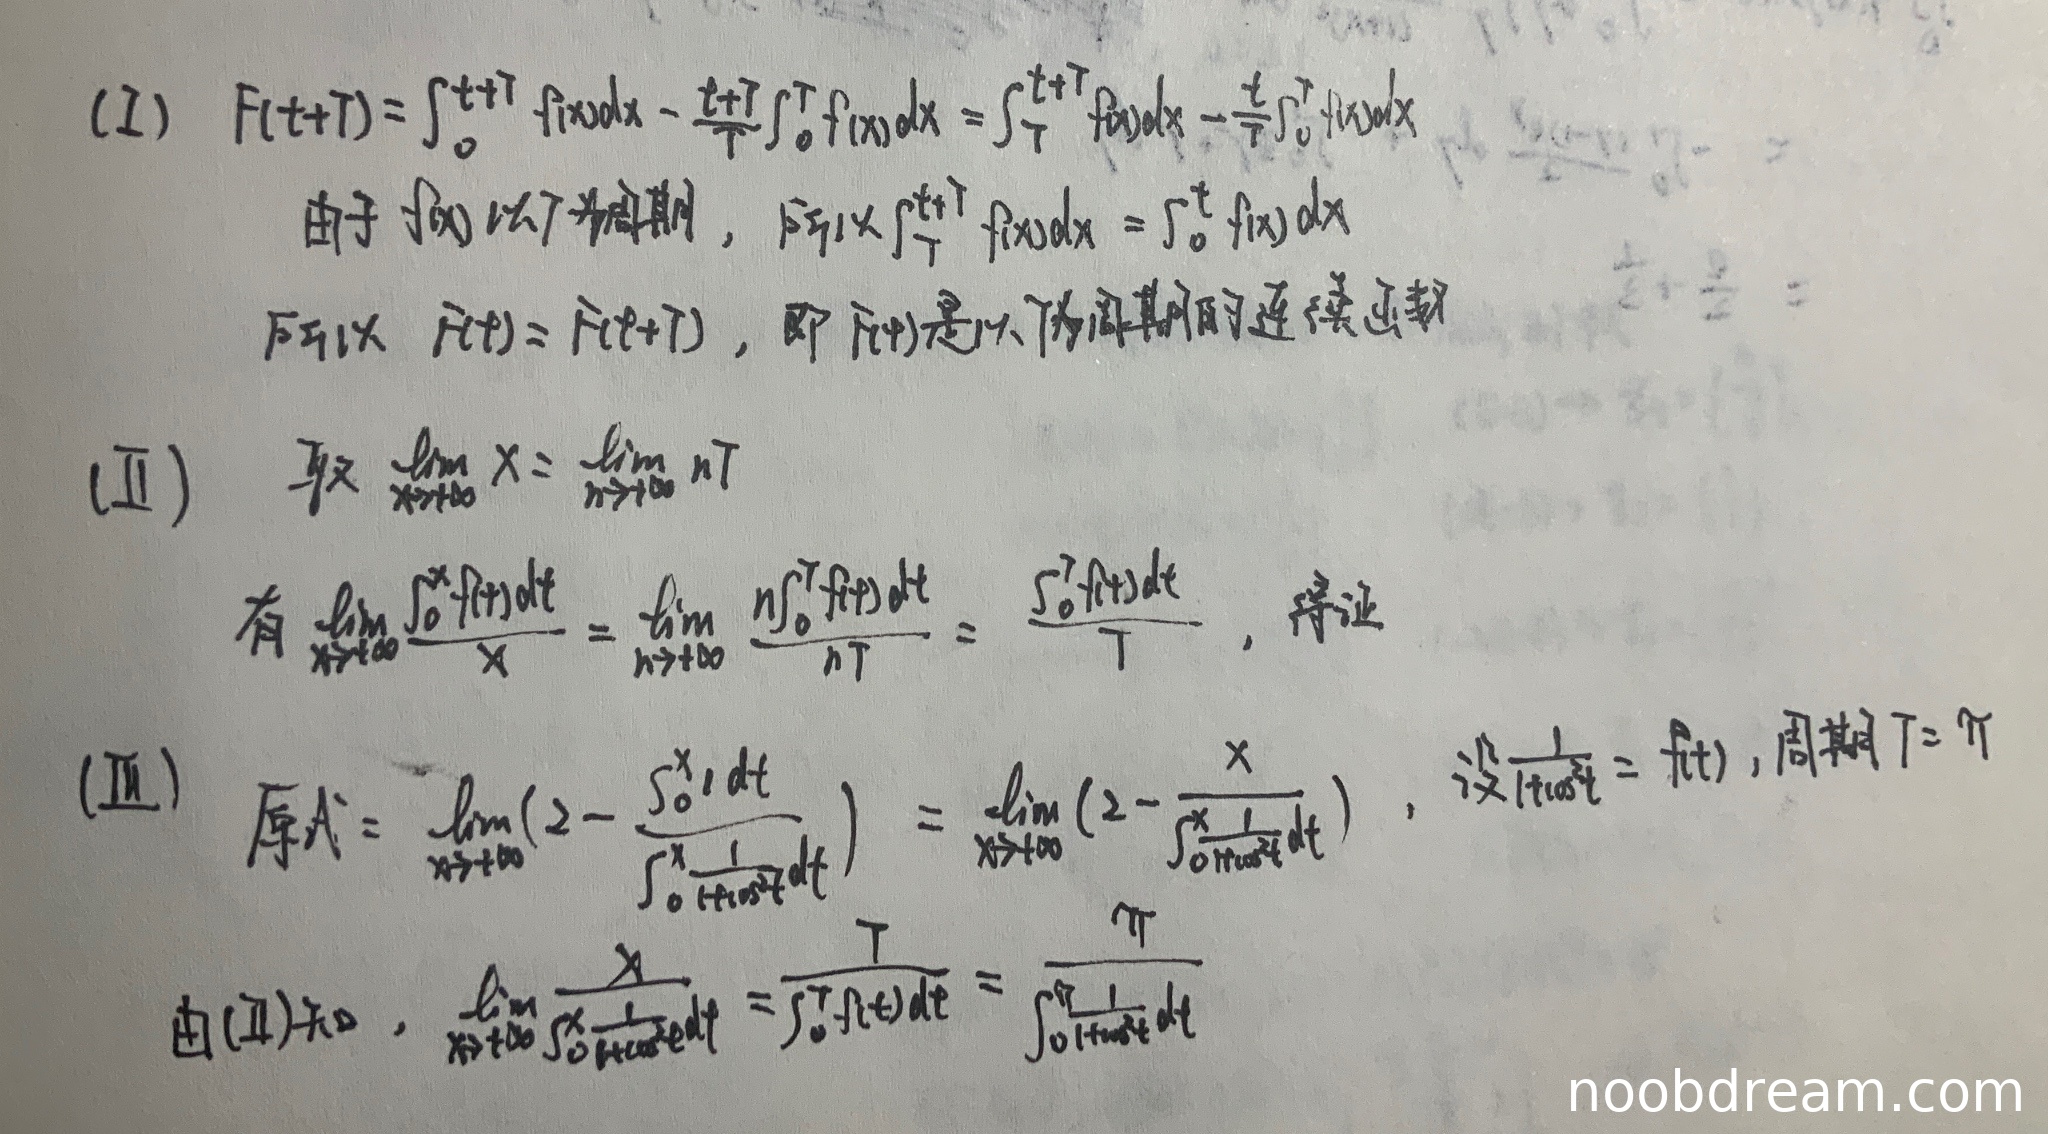 (I) F(t+T) = ∫₀^{t+T} f(x)dx - \frac{t+T}{T} ∫₀^T f(x)dx = ∫_T^{t+T} f(x)dx - \frac{t}{T} ∫₀^T f(x)dx
由于 f(x) 以T为周期, 所以 ∫_T^{t+T} f(x)dx = ∫₀^t f(x)dx
所以 F(t) = F(t+T), 即 F(t)是以T为周期的连续函数
(II) 取 \lim_{x→+∞} x = \lim_{n→+∞} nT
有 \lim_{x→+∞} \frac{∫₀^x f(t)dt}{x} = \lim_{n→+∞} \frac{n∫₀^T f(t)dt}{nT} = \frac{∫₀^T f(t)dt}{T}, 得证
(III) 原式 = \lim_{x→+∞} (2 - \frac{∫₀^x 1 dt}{∫₀^x \frac{1}{1+cos²t} dt}) = \lim_{x→+∞} (2 - \frac{x}{∫₀^x \frac{1}{1+cos²t} dt}), 设 \frac{1}{1+cos²t} = f(t), 周期 T = π
由(II)知, \lim_{x→+∞} \frac{x}{∫₀^x \frac{1}{1+cos²t} dt} = \frac{T}{∫₀^T f(t)dt} = \frac{π}{∫₀^π \frac{1}{1+cos²t} dt}
noobdream.com